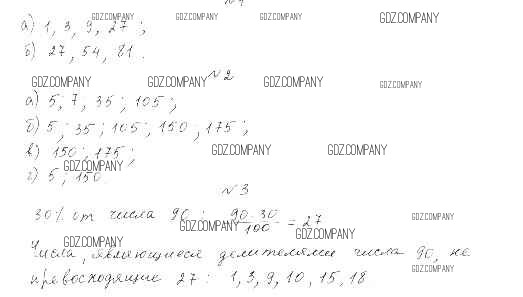 GDZ.COMPANY GDZ.COMPANY GDZ.COMPANY GDZ.COMPANY
а) 1, 3, 9, 27 ;
б) 27, 54, 81 .
GDZ.COMPANY GDZ.COMPANY №2 GDZ.COMPANY GDZ.COMPANY
а) 5; 7, 35 ; 105 ;
б) 5 ; 35 ; 105 ; 150 ; 175 ;
в) 150 ; 175 ; GDZ.COMPANY GDZ.COMPANY
GDZ.COMPANY
г) 5 ; 150.
№3
30% от числа 90 : 90·30/100 = 27 GDZ.COMPANY
GDZ.COMPANY GDZ.COMPANY
GDZ.COMPANY
Числа, являющиеся делителями числа 90, не
превосходящие 27 : 1, 3, 9, 10, 15, 18 GDZ.COMPANY